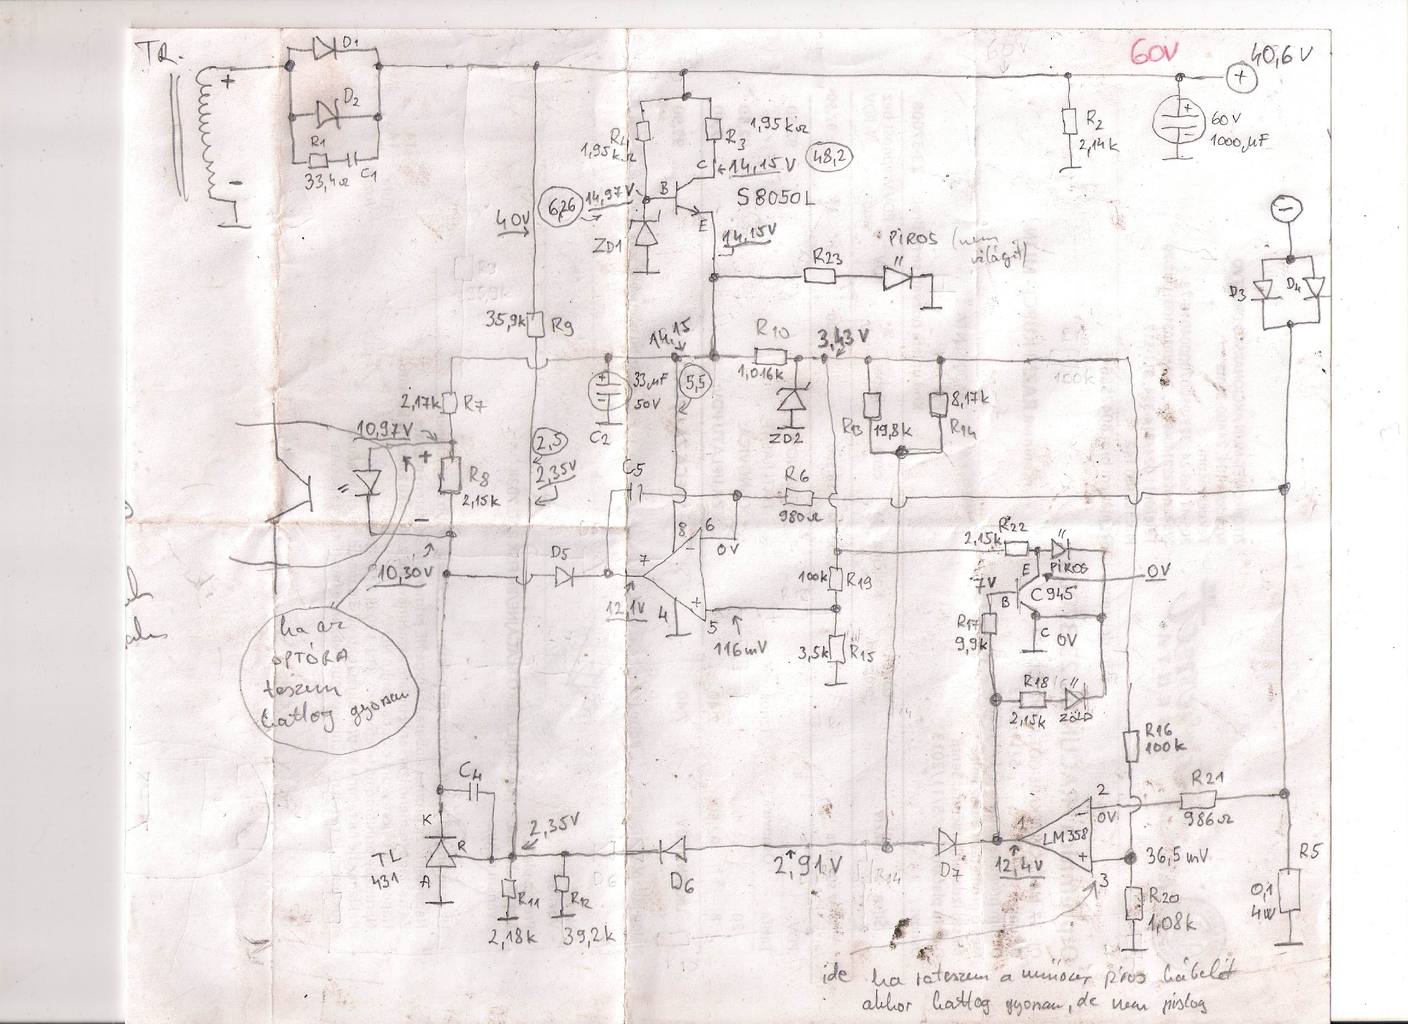 TR.
+
-
D1
D2
R1
33,4Ω
C1
60V
40,6V
+
60V
1000µF
R2
2,14k
R4
1,95kΩ
R3
1,95kΩ
C
14,15V
48,2
S8050L
B
E
14,97V
6,26
ZD1
14,15V
40V
35,9k
R9
R23
PIROS (nem
világít)
-
D3
D4
14,15
5,5
R10
1,016k
3,43V
ZD2
R13
19,8k
8,17k
R14
100k
33µF
50V
C2
2,17k
R7
10,97V
+
R8
2,15k
-
10,30V
2,5
2,35V
C5
R6
980Ω
D5
7
8
6
-
0V
12,1V
4
+
5
116mV
100k
R19
3,5k
R15
R22
2,15k
PIROS
E
0V
7V
B
C945
C
0V
R17
9,9k
R18
2,15k
ZÖLD
R16
100k
ha az
OPTÓRA
teszem
kattog gyorsan
C4
K
R
A
TL
431
2,35V
R11
2,18k
R12
39,2k
D6
2,91V
R14
D7
1
12,4V
LM358
2
-
0V
+
3
36,5mV
R20
1,08k
R21
986Ω
R5
0,1
4W
ide ha ráteszem a műszer piros kábelét
akkor kattog gyorsan, de nem pislog